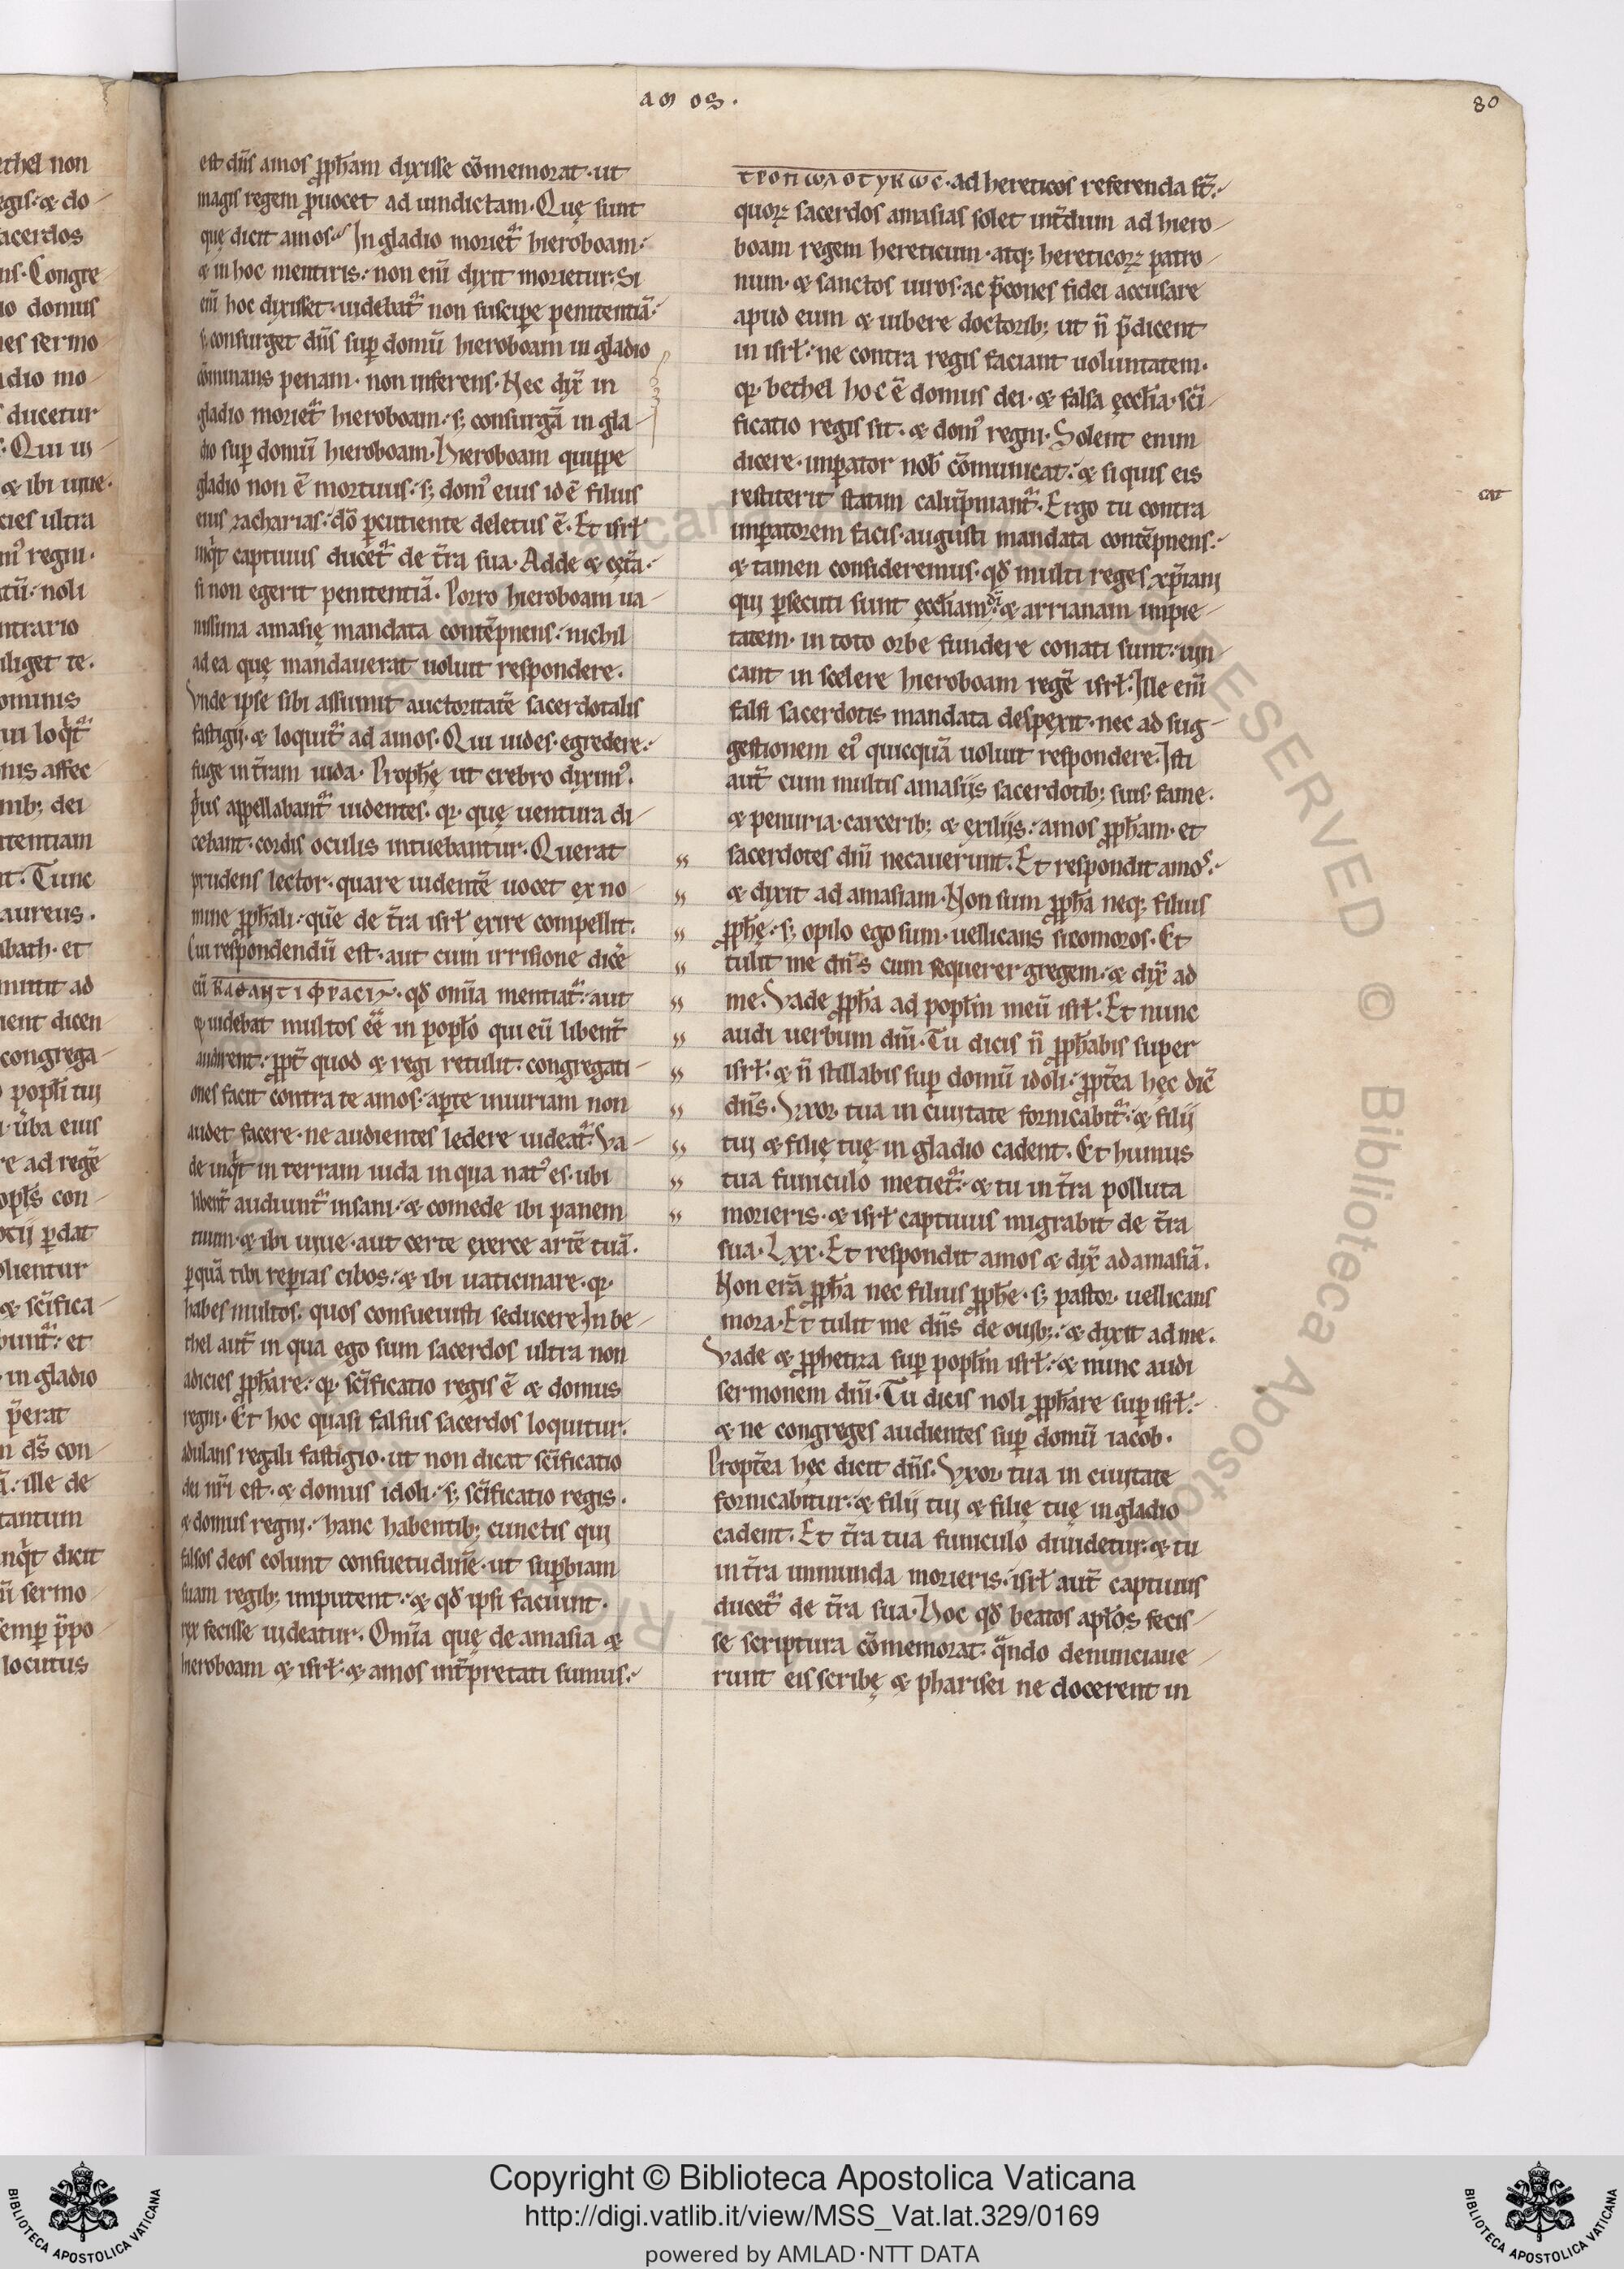 AMOS.
80
ethel non
egis: & do-
acerdos
ns. Congre
io domus
nes sermo
adio mo-
ducetur
. Qui ui
& ibi uiue.
cies ultra
m' regni.
tū. noli
ntrario
iliget te.
ominus
ui loq̄t᷑
nis affec
nib; dei
itentiam
nt. Tunc
aureus.
abath. et
mittit ad
ient dicen
congrega-
popl̄i tui
ū̄ba eius
re ad regē
opl̄s con-
ocii p̄dat
olientur
& sc̄ifica-
bunt᷑: et
in gladio
p̄erat
n ds̄ con-
ā: ille de
tantum
nq̄t dicit
sermo-
semp̄ p̄po-
locutus
est dn̄s amos ꝓph̄am dixisse cōmemorat. ut
magis regem ꝓuocet ad uindictam. Quę sunt
quę dicit amos: In gladio moriet᷑ hieroboam:
& in hoc mentiris: non eni᷑ dixit morietur. Si
eni᷑ hoc dixisset. uidebat᷑ non suscipe penitentiā:
s; consurget dn̄s sup̄ domū hieroboam in gladio
cōminans penam. non inferens. Nec dix̄ in
gladio moriet᷑ hieroboam: s; consurgā in gla-
dio sup̄ domū hieroboam. Hieroboam quippe
gladio non ē mortuus: s; dom' eius id ē filius
eius zacharias: dō ꝑcutiente deletus ē. Et isrł
inq̄t captiuus ducet᷑ de t̄ra sua. Adde & cęt̄a.
si non egerit penitentiā. Porro hieroboam ua-
nissima amasię mandata contēpnens: nichil
ad ea quę mandauerat uoluit respondere.
Vnde ipse sibi assumit auctoritatē sacerdotalis
fastigii. & loquit᷑ ad amos. Qui uides. egredere:
fuge in t̄ram iuda. Prophę ut crebro dixim'.
p̄us appellabant᷑ uidentes. qꝛ. quę uentura di-
cebant. cordis oculis intuebantur. Querat
prudens lector. quare uidentē uocet ex no-
mine ꝓph̄ali: quē de t̄ra isrł exire compellit.
Cui respondendū est. aut cum irrisione dicē
eū ΚΑΘΑΝΤΙΦΡΑCΙΝ. qd̄ om̄ia mentiat᷑: aut
qꝛ uidebat multos eē̄ in popl̄o qui eū libent̄
audirent: ꝓpt̄ quod & regi retulit: congregati-
ones facit contra te amos: aꝑte iniuriam non
audet facere. ne audientes ledere uideat᷑. Va-
de inq̄t in terram iuda in qua nat' es. ubi
libent̄ audiunt᷑ insani: & comede ibi panem
tuum. & ibi uiue. aut certe exerce artē tuā.
ꝑ quā tibi reꝑias cibos: & ibi uaticinare. qꝛ.
habes multos: quos consueuisti seducere. In be-
thel aut̄ in qua ego sum sacerdos ultra non
adicies ꝓph̄are: qꝛ. sc̄ificatio regis ē & domus
regni. Et hoc quasi falsus sacerdos loquitur.
adulans regali fastigio. ut non dicat sc̄ificatio
dei nr̄i est. & domus idoli: s; sc̄ificatio regis.
& domus regni: hanc habentib; cunctis qui
falsos deos colunt consuetudinē. ut suꝑbiam
suam regib; imputent: & qd̄ ipsi faciunt.
rex fecisse uideatur. Om̄ia quę de amasia &
hieroboam & isrł. & amos int̄pretati sumus:
ΤΡΟΠΩΛΟΤΥΚΩC. ad hereticos referenda st̄:
quoꝝ sacerdos amasias solet int̄dum ad hiero-
boam regem hereticum. atq; hereticoꝝ patro-
num. & sanctos uiros. ac p̄cones fidei accusare
apud eum & iubere doctorib; ut n̄ p̄dicent
in isrł: ne contra regis faciant uoluntatem.
qꝛ. bethel hoc ē domus dei. & falsa ęcclīa. sc̄i-
ficatio regis sit. & dom' regni. Solent enim
dicere. imꝑator nob̄ cōmunicat: & si quis eis
restiterit statim calūpniant᷑. Ergo tu contra
cat
imꝑatorem facis. augusti mandata contēpnens:
& tamen consideremus. qd̄ multi reges xp̄iani
qui ꝑsecuti sunt ęcclīam: & arrianam impie-
tatem. in toto orbe fundere conati sunt: uin-
cant in scelere hieroboam regē isrł. Ille eni᷑
falsi sacerdotis mandata despexit. nec ad sug-
gestionem ei' quicquā uoluit respondere. Isti
aut̄ cum multis amasiis sacerdotib; suis. fame.
& penuria. carcerib; & exiliis: amos ꝓph̄am. et
sacerdotes dn̄i necauerunt. Et respondit amos:
& dixit ad amasiam. Non sum ꝓph̄a neq; filius
ꝓph̄ę: s; opilo ego sum. uellicans sicomoros. Et
tulit me dn̄s cum sequerer gregem: & dix̄ ad
me. Vade ꝓph̄a ad popl̄m meū isrł. Et nunc
audi uerbum dn̄i. Tu dicis n̄ ꝓph̄abis super
isrł: & n̄ stillabis sup̄ domū idoli: ꝓpt̄ea hęc dic̄
dn̄s. Vxor tua in ciuitate fornicabit᷑: & filii
tui & filię tuę in gladio cadent. Et humus
tua funiculo metiet᷑: & tu in t̄ra polluta
morieris. & isrł captiuus migrabit de t̄ra
sua. Lxx. Et respondit amos & dix̄ ad amasiā.
Non erā ꝓph̄a nec filius ꝓph̄e. s; pastor. uellicans
mora. Et tulit me dn̄s de ouib;: & dixit ad me.
Vade & ꝓphetiza sup̄ popl̄m isrł: & nunc audi
sermonem dn̄i. Tu dicis noli ꝓph̄are sup̄ isrł:
& ne congreges audientes sup̄ domū iacob.
Propt̄ea hęc dicit dn̄s. Vxor tua in ciuitate
fornicabitur: & filii tui & filię tuę in gladio
cadent. Et t̄ra tua funiculo diuidetur: & tu
in t̄ra immunda morieris. isrł aut̄ captiuus
ducet᷑ de t̄ra sua. Hoc qd̄ beatos apl̄os fecis-
se scriptura cōmemorat. qn̄do denunciaue-
runt eis scribę & pharisei ne docerent in
Copyright © Biblioteca Apostolica Vaticana
http://digi.vatlib.it/view/MSS_Vat.lat.329/0169
powered by AMLAD·NTT DATA
BIBLIOTECA APOSTOLICA VATICANA
BIBLIOTECA APOSTOLICA VATICANA